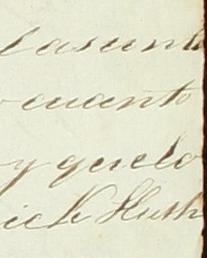 el asunto
cuanto
y quelo
ick Huth